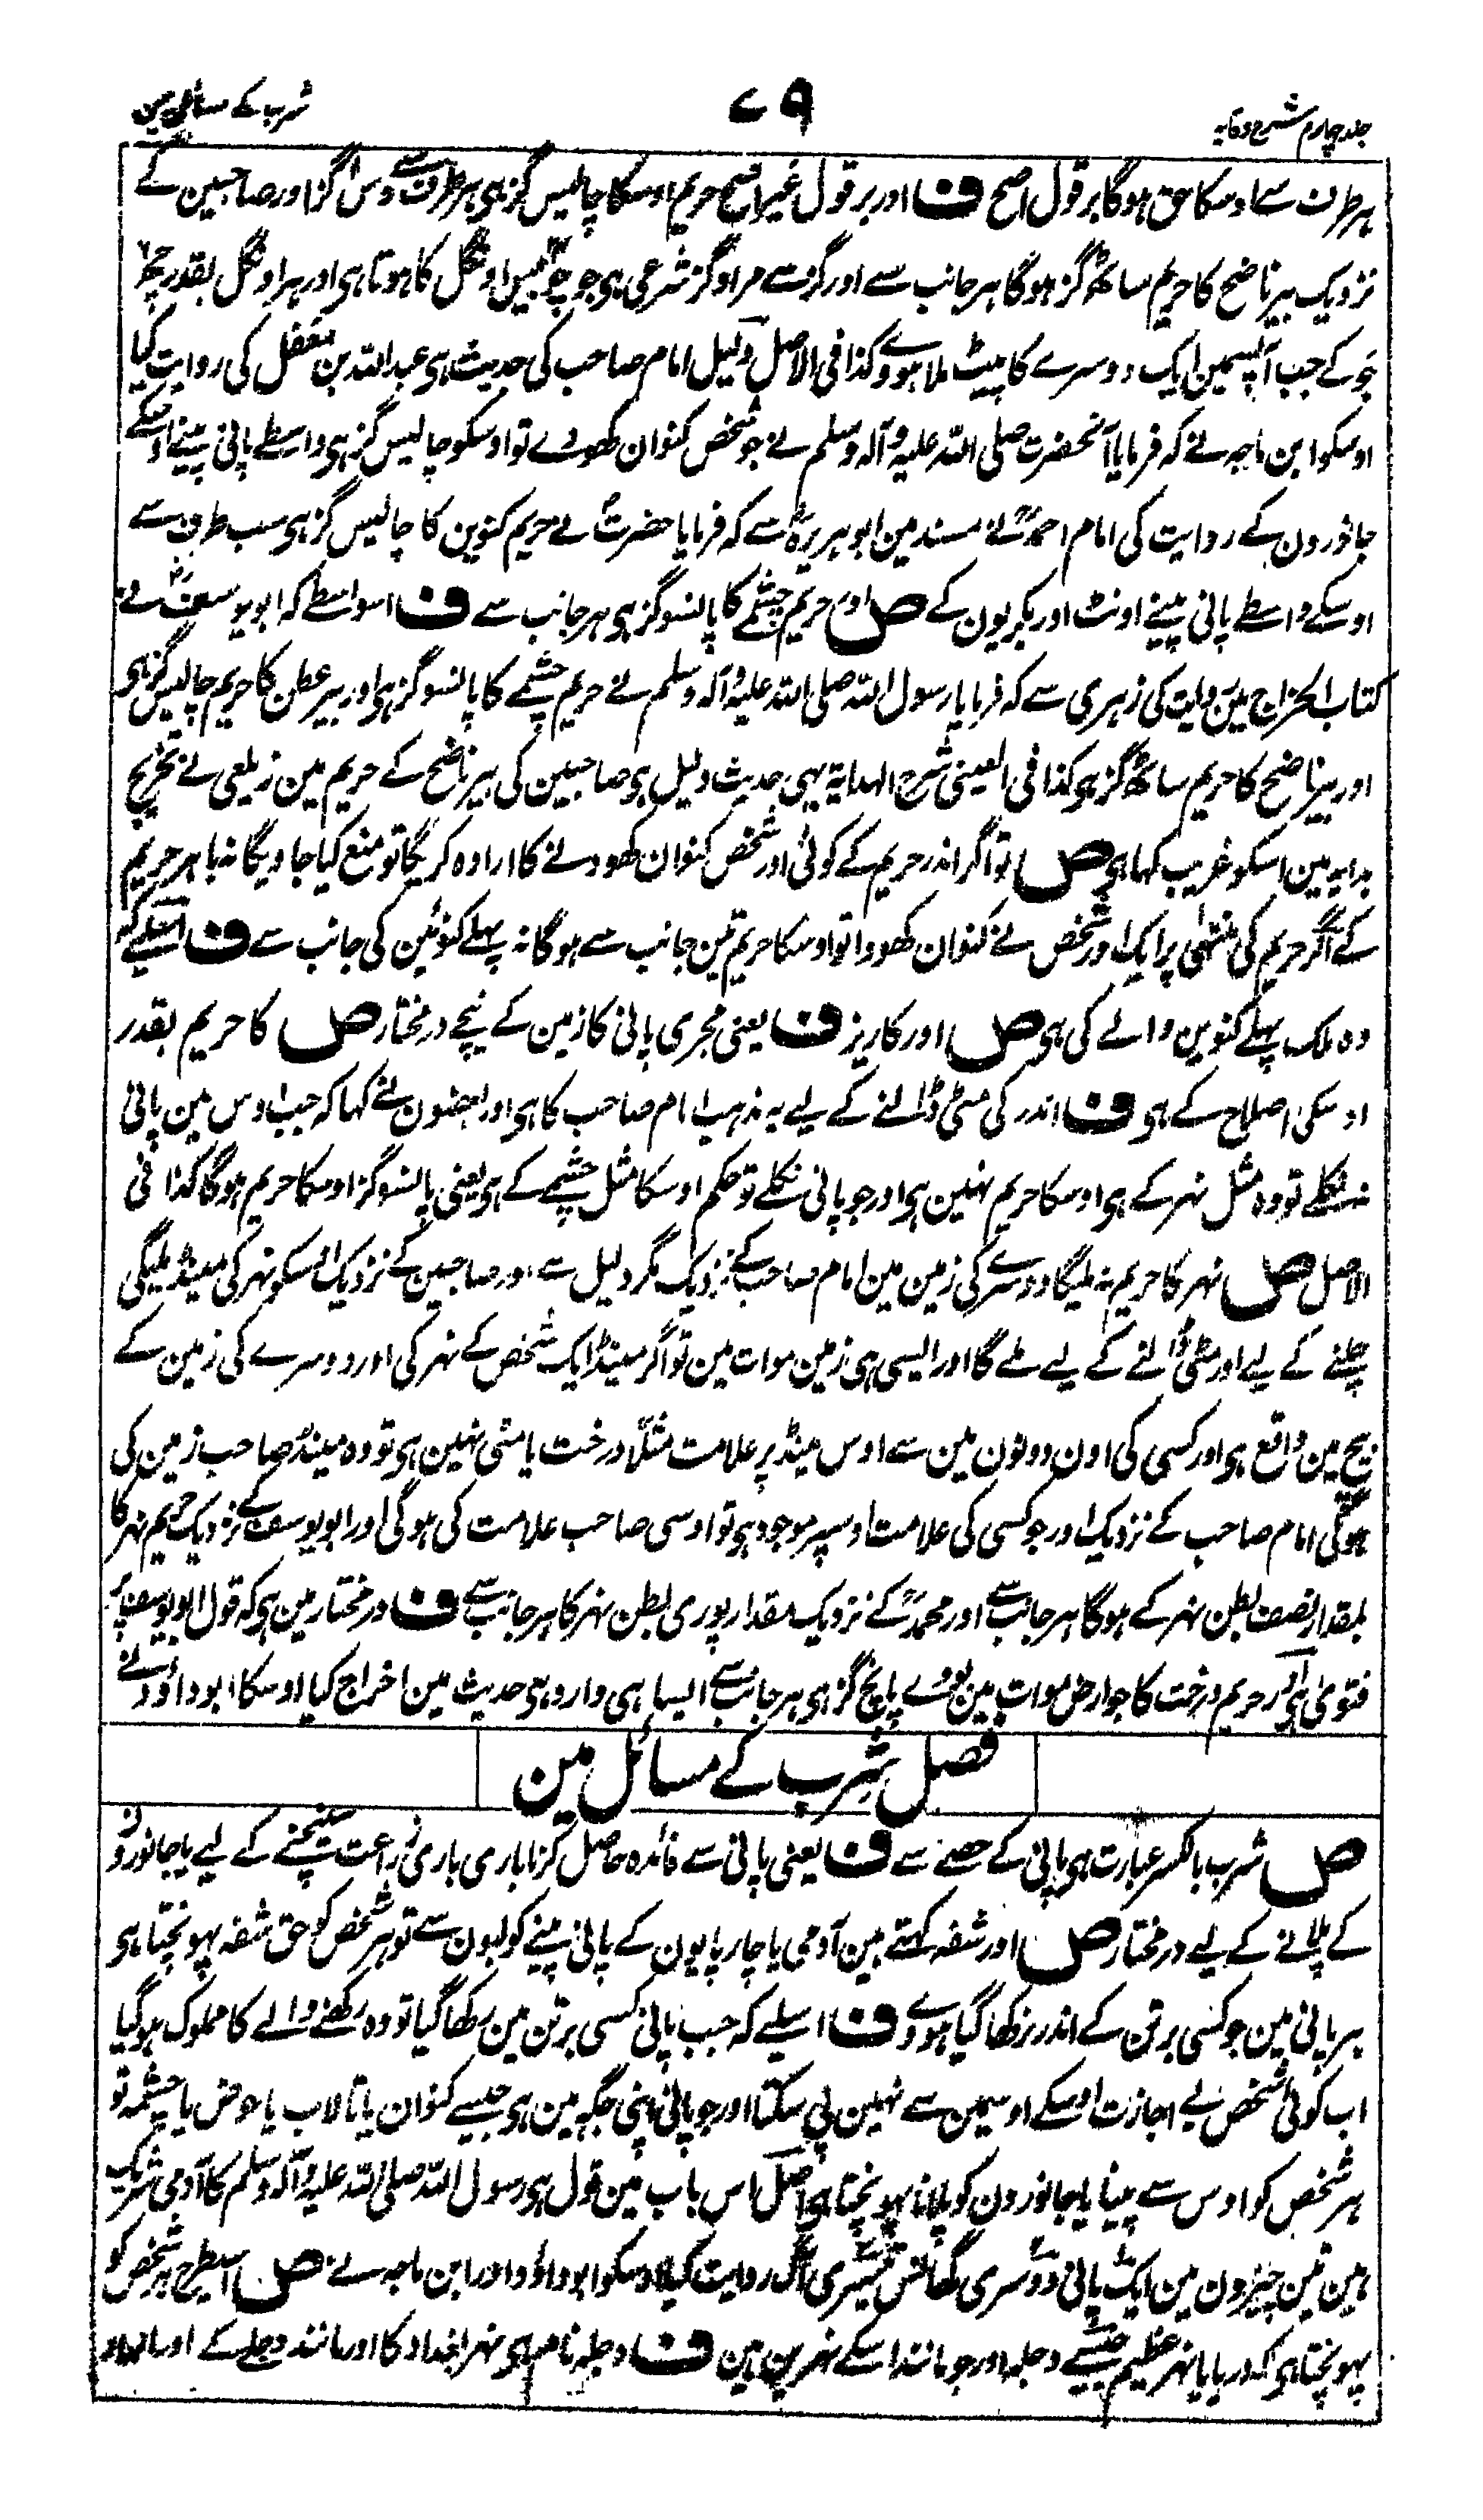 جلد چہارم شرح وقایہ
۷۹
شرب کے مسائل مین
ہر طرف سے اوسکا حق ہوگا بر قول اصح ف اور بر قول غیر اصح حریم اوسکا چالیس گز ہی ہر طرف سے دس گز اور صاحبین کے
نزدیک بیر ناضح کا حریم ساٹھ گز ہوگا ہر جانب سے اور گز سے مراد گز شرعی ہی جو چوبیس اونگل کا ہوتا ہی اور ہر اونگل بقدر چھ
جو کے جب آپسمین ایک دوسرے کا پیٹ ملا ہووے کذا فی الاصل دلیل امام صاحب کی حدیث ہی عبداللہ بن مغفل کی روایت کیا
اوسکو ابن ماجہ نے کہ فرمایا آنحضرت صلی اللہ علیہ وآلہ وسلم نے جو شخص کنوان کھودے تو اوسکو چالیس گز ہی واسطے پانی پینے اوسکے
جانورون کے روایت کی امام احمد نے مسند مین ابو ہریرہ سے کہ فرمایا حضرت نے حریم کنوین کا چالیس گز ہی سب طرف سے
اوسکے واسطے پانی پینے اونٹ اور بکریون کے ص اور حریم چشمے کا پانسو گز ہی ہر جانب سے ف اسواسطے کہ ابو یوسف نے
کتاب الخراج مین روایت کی زہری سے کہ فرمایا رسول اللہ صلی اللہ علیہ وآلہ وسلم نے حریم چشمے کا پانسو گز ہی اور بیر عطن کا حریم چالیس گز ہی
اور بیر ناضح کا حریم ساٹھ گز ہی کذا فی العینی شرح الہدایہ یہی حدیث دلیل ہی صاحبین کی بیر ناضح کے حریم مین زیلعی نے تخریج
ہدایہ مین اسکو غریب کہا ہی ص تو اگر اندر حریم کے کوئی اور شخص کنوان کھودنے کا ارادہ کریگا تو منع کیا جاویگا نہ باہر حریم
کے اگر حریم کی منتہی پر ایک اور شخص نے کنوان کھودا تو اوسکا حریم تین جانب سے ہوگا نہ پہلے کنوئین کی جانب سے ف اسلیے کہ
وہ ملک پہلے کنوین والے کی ہی ص اور کاریز ف یعنی مجری پانی کا زمین کے نیچے در مختار ص کا حریم بقدر
اوسکی اصلاح کے ہی ف اندر کی مٹی ڈالنے کے لیے یہ مذہب امام صاحب کا ہی اور بعضون نے کہا کہ جب اوس مین پانی
نہ نکلے تو وہ مثل نہر کے ہی اوسکا حریم نہین ہی اور جو پانی نکلے تو حکم اوسکا مثل چشمے کے ہی یعنی پانسو گز اوسکا حریم ہوگا کذا فی
الاصل ص نہر کا حریم نہ ملیگا دوسرے کی زمین مین امام صاحب کے نزدیک مگر دلیل سے اور صاحبین کے نزدیک اسکو نہر کی مینڈ ملیگی
چلنے کے لیے اور مٹی ڈالنے کے لیے ملے گا اور ایسی ہی زمین موات مین تو اگر مینڈ ایک شخص کے نہر کی اور دوسرے کی زمین کے
بیچ مین واقع ہی اور کسی کی اون دونون مین سے اوس مینڈ پر علامت مثلاً درخت یا مٹی نہین ہی تو وہ مینڈ صاحب زمین کی
ہوگی امام صاحب کے نزدیک اور جو کسی کی علامت اوسپر موجود ہی تو اوسی صاحب علامت کی ہوگی اور ابو یوسف کے نزدیک حریم نہر کا
بمقدار نصف بطن نہر کے ہوگا ہر جانب سے اور محمد کے نزدیک مقدار پوری بطن نہر کا ہر جانب سے ف در مختار مین ہی کہ قول ابو یوسف پر
فتویٰ ہی اور حریم درخت کا جو ارض موات مین بووے پانچ گز ہی ہر جانب سے ایسا ہی وارد ہی حدیث مین اخراج کیا اوسکا ابو داؤد نے
فصل شِرب کے مسائل مین
ص شرب بالکسر عبارت ہی پانی کے حصے سے ف یعنی پانی سے فائدہ حاصل کرنا باری باری زراعت سینچنے کے لیے یا جانورون
کے پلانے کے لیے در مختار ص اور شفہ کہتے ہین آدمی یا چارپایون کے پانی پینے کو لبون سے تو ہر شخص کو حق شفہ پہونچتا ہی
ہر پانی مین جو کسی برتن کے اندر نہ رکھا گیا ہووے ف اسلیے کہ جب پانی کسی برتن مین رکھا گیا تو وہ رکھنے والے کا مملوک ہوگیا
اب کوئی شخص بے اجازت اوسکے اوسمین سے نہین پی سکتا اور جو پانی اپنی جگہ مین ہی جیسے کنوان یا تالاب یا حوض یا چشمہ تو
ہر شخص کو اوس سے پینا یا جانورون کو پلانا پہونچتا ہی اصل اس باب مین قول ہی رسول اللہ صلی اللہ علیہ وآلہ وسلم کا آدمی شریک
ہین تین چیزون مین ایک پانی دوسری گھانس تیسری آگ روایت کیا اوسکو ابوداؤد اور ابن ماجہ نے ص اسیطرح ہر شخص کو
پہونچتا ہی کہ دریا یا نہر عظیم جیسے دجلہ اور جو مانند اسکے نہرین ہین ف دجلہ نام ہی نہر بغداد کا اور مانند دجلے کے